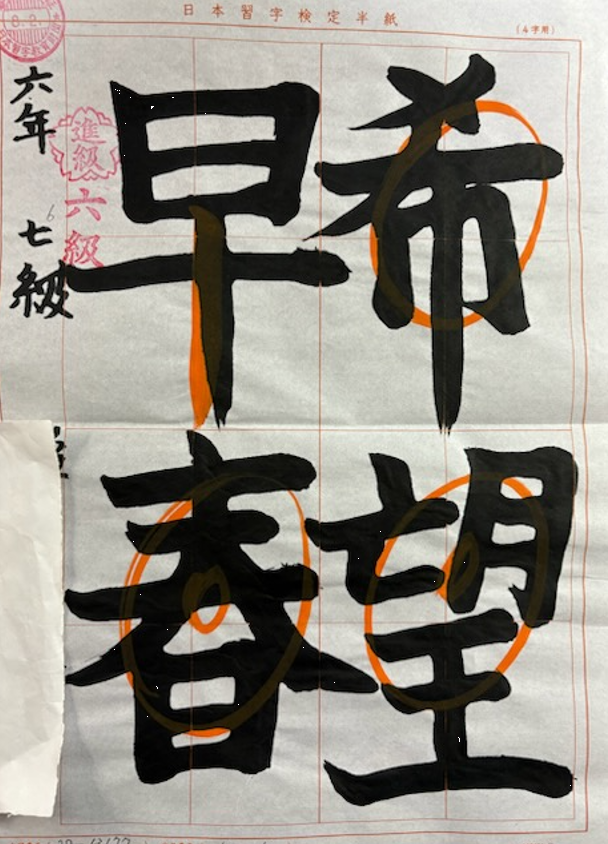 日本習字検定半紙
(4字用)
希望
早春
進級
六級
六年
6
七級